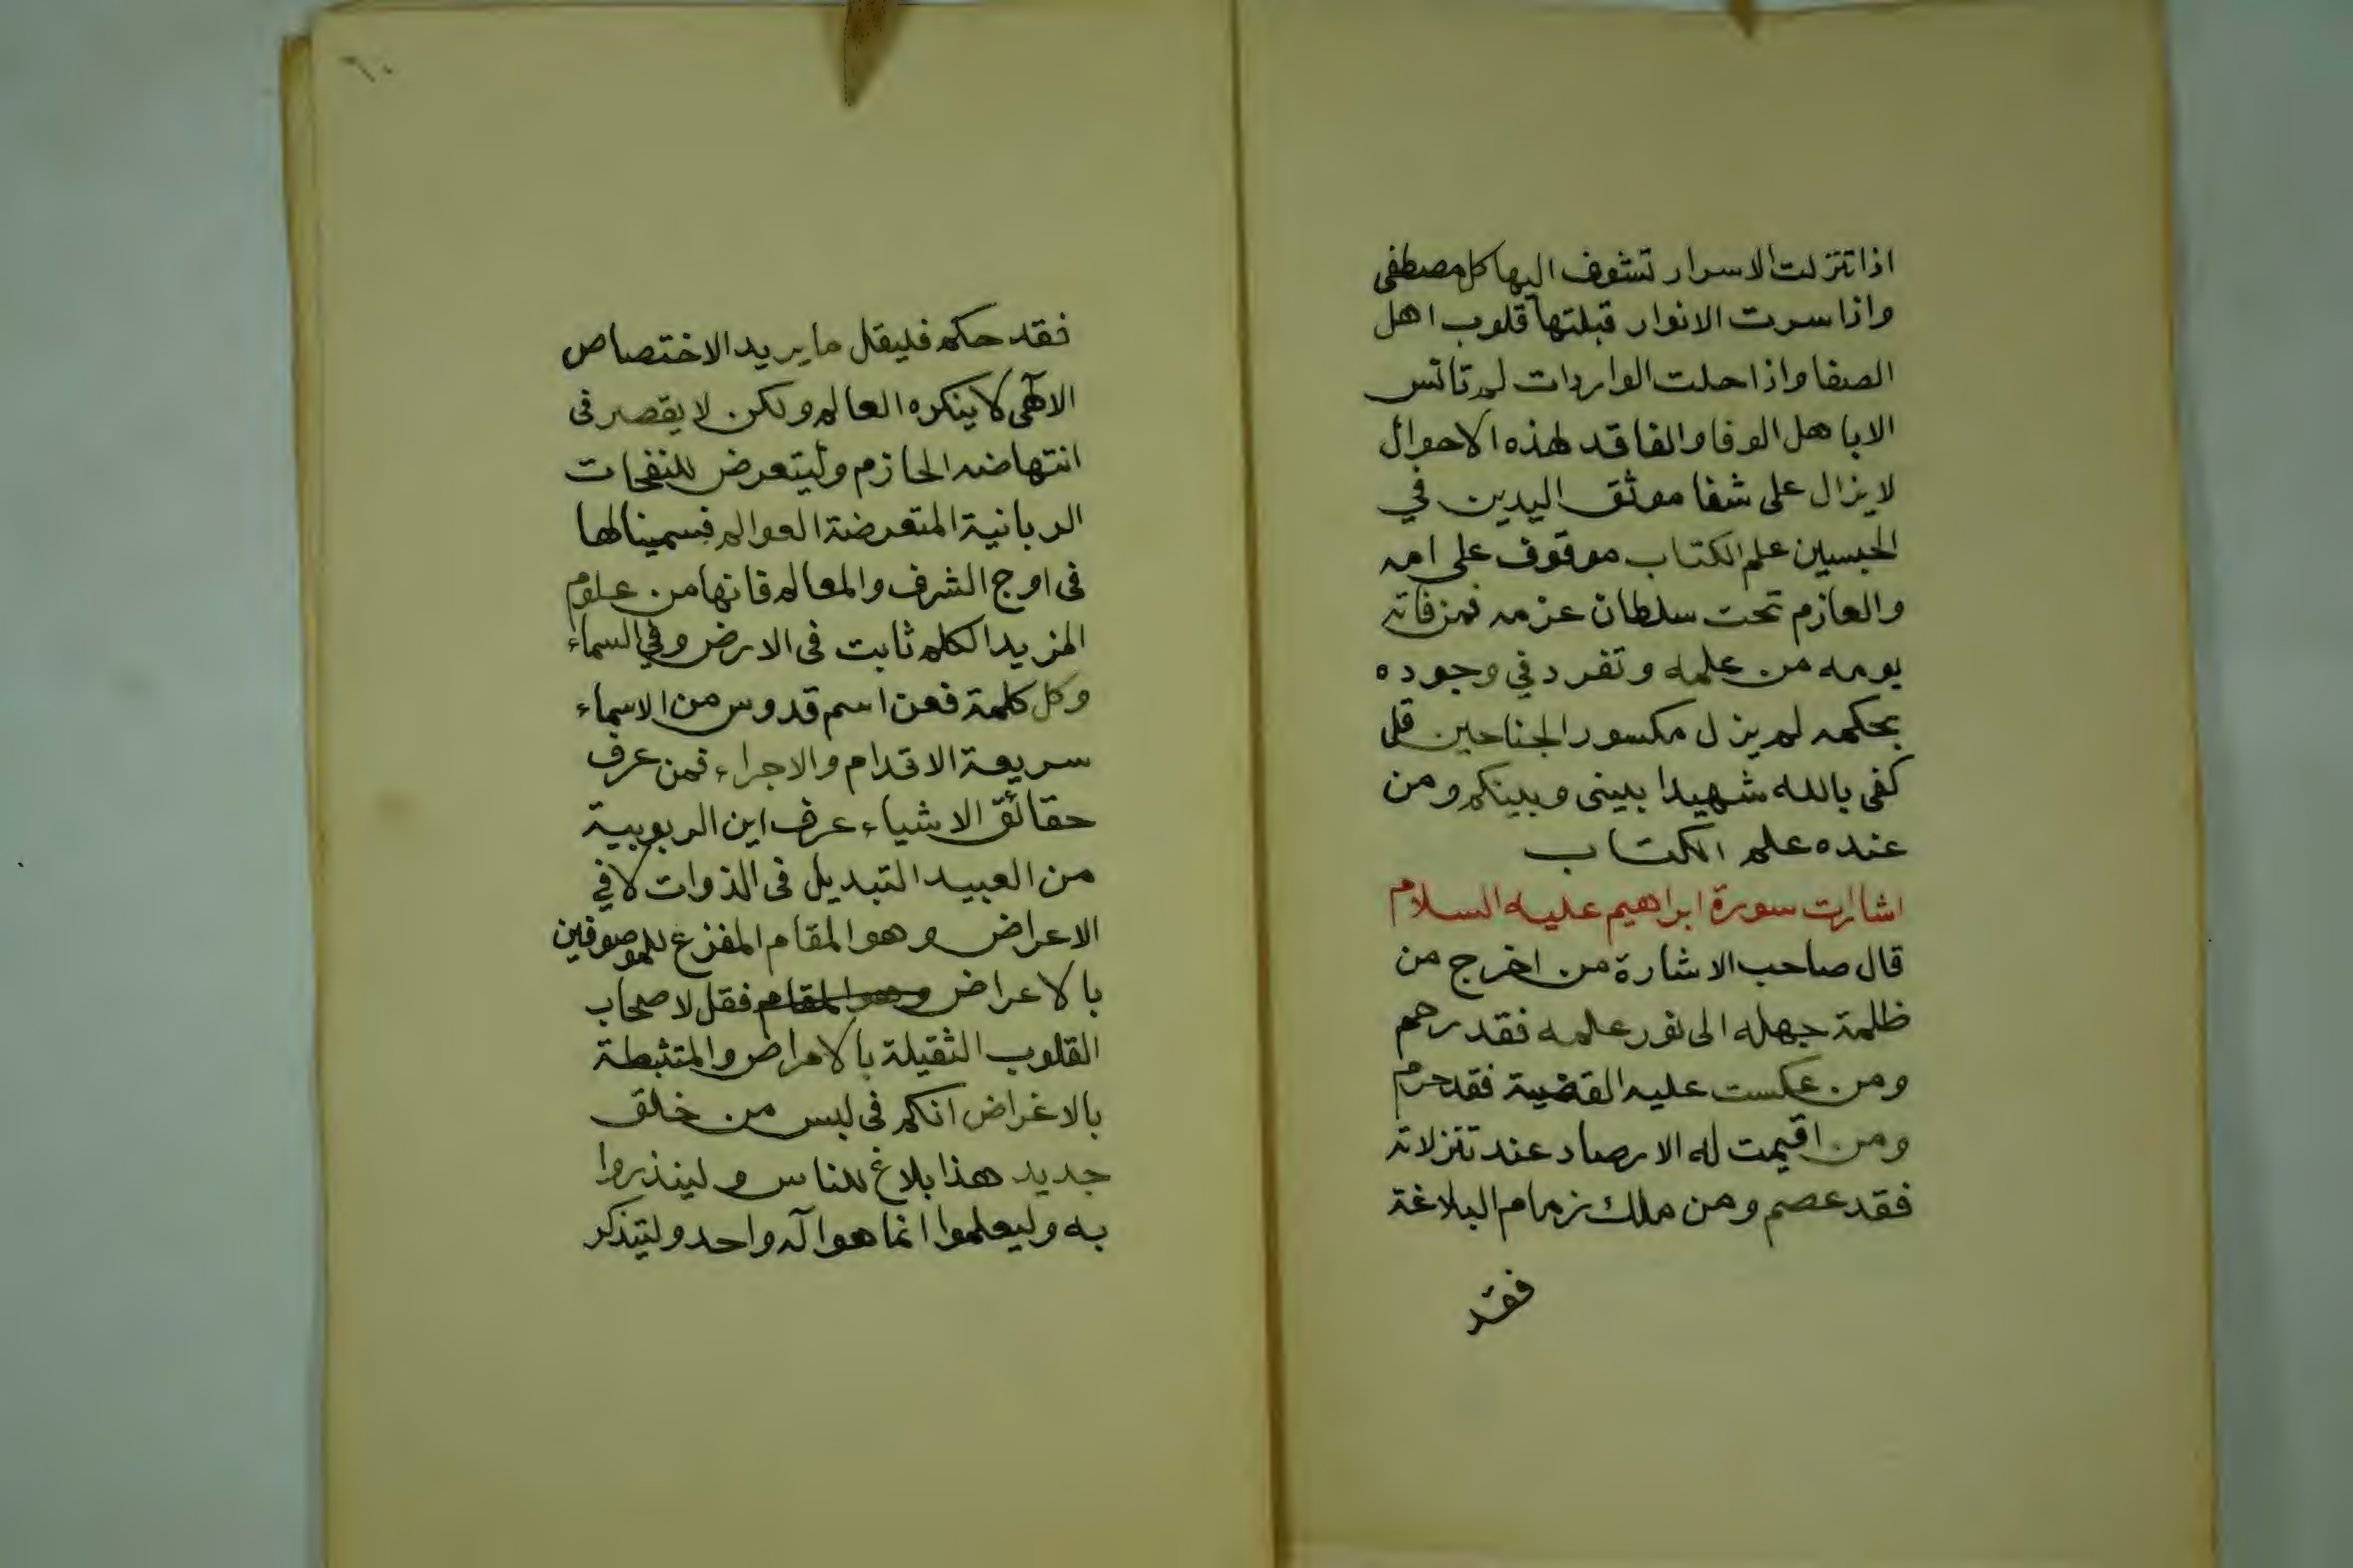 اذا تنزلت الاسرار تشوف اليها كل مصطفى
واذا سرت الانوار قبلتها قلوب اهل
الصفا واذا حلت الواردات لم تانس
الا باهل الوفا والفاقد لهذه الاحوال
لا يزال على شفا موثق اليدين في
الحبسين علم الكتاب موقوف على امه
والعازم تحت سلطان عزمه فمن فاته
يومه من علمه وتفرد في وجوده
بحكمه لم يزل مكسور الجناحين قل
كفى بالله شهيدا بيني وبينكم ومن
عنده علم الكتاب
اشارات سورة ابراهيم عليه السلام
قال صاحب الاشارة من اخرج من
ظلمة جهله الى نور علمه فقد رحم
ومن عكست عليه القضية فقد حرم
ومن اقيمت له الارصاد عند تنزلاته
فقد عصم ومن ملك زمام البلاغة
فقد
٦٠
فقد حكم فليقل ما يريد الاختصاص
الالهى لا ينكره العالم ولكن لا يقصر فى
انتهاضه الحازم وليتعرض للنفحات
الربانية المتعرضة العوالم فبسمينالها
فى اوج الشرف والمعالم فانها من علوم
المزيد الكلم ثابت فى الارض وفي السماء
وكل كلمة فعن اسم قدوس من الاسماء
سريعة الاقدام والاجراء فمن عرف
حقائق الاشياء عرف اين الربوبية
من العبيد التبديل فى الذوات لا في
الاعراض وهو المقام المفزع للموصوفين
بالاعراض وهو المقام فقل لاصحاب
القلوب الثقيلة بالامراض والمتثبطة
بالاغراض انكم فى لبس من خلق
جديد هذا بلاغ للناس ولينذروا
به وليعلموا انما هو اله واحد وليتذكر